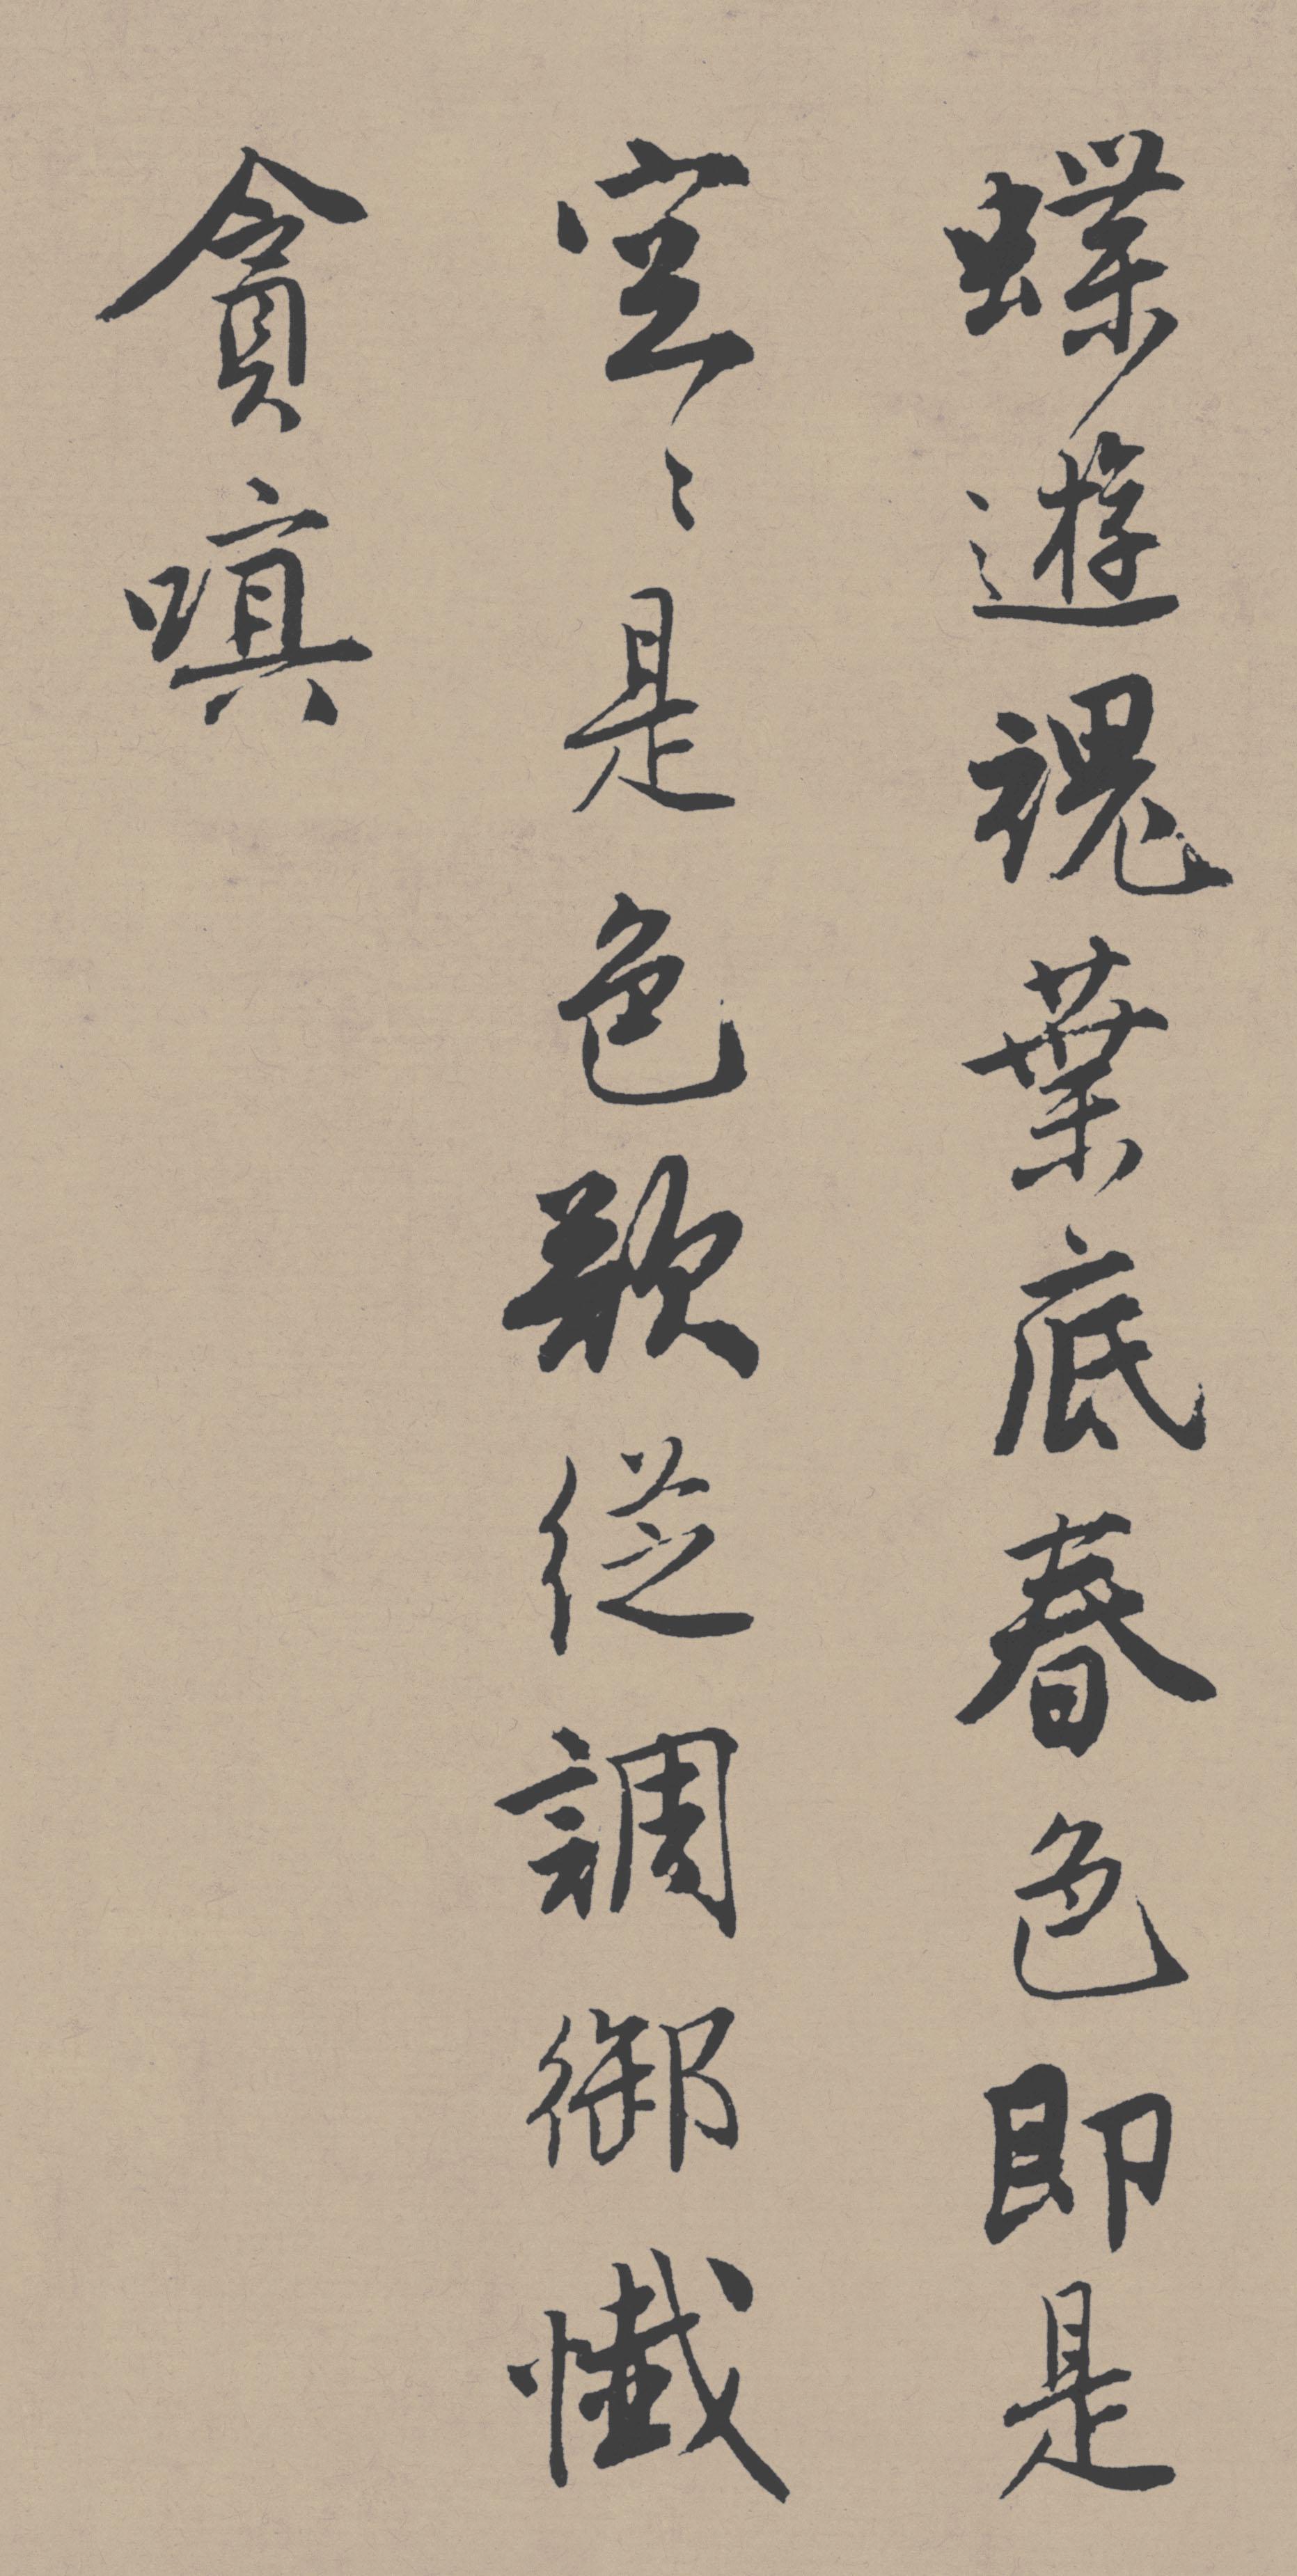 蝶遊魂葉底春色即是
空々是色欲從調御懺
貪嗔